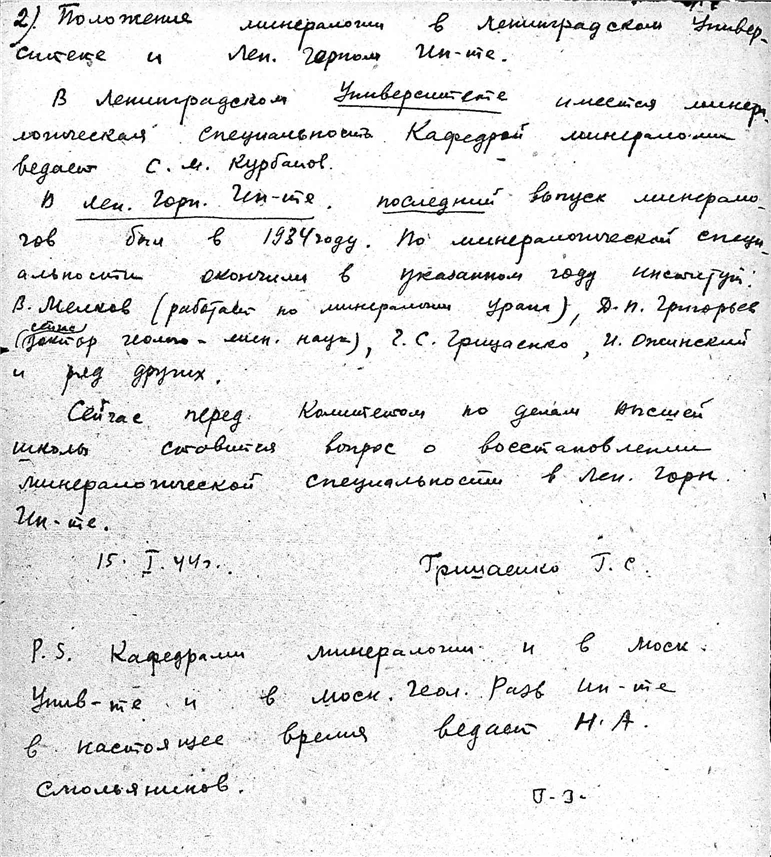 2). Положение минералогии в Ленинградском Универ-
ситете и Лен. Горном Ин-те.
В Ленинградском Университете имеется минера-
логическая специальность. Кафедрой минералогии
ведает С. М. Курбатов.
В Лен. Горн. Ин-те. последний выпуск минерало-
гов был в 1934 году. По минералогической специ-
альности окончили в указанном году институт:
В. Мелков (работает по минералогии урана), Д. П. Григорьев
(сейчас доктор геолого-мин. наук), Г. С. Грицаенко, И. Ожинский
и ряд других.
Сейчас перед Комитетом по делам высшей
школы ставится вопрос о восстановлении
минералогической специальности в Лен. Горн.
Ин-те.
15. I. 44г.. Грицаенко Г. С.
P. S. Кафедрами минералогии и в Моск.
Унив-те и в Моск. Геол. Разв Ин-те
в настоящее время ведает Н. А.
Смольянинов.